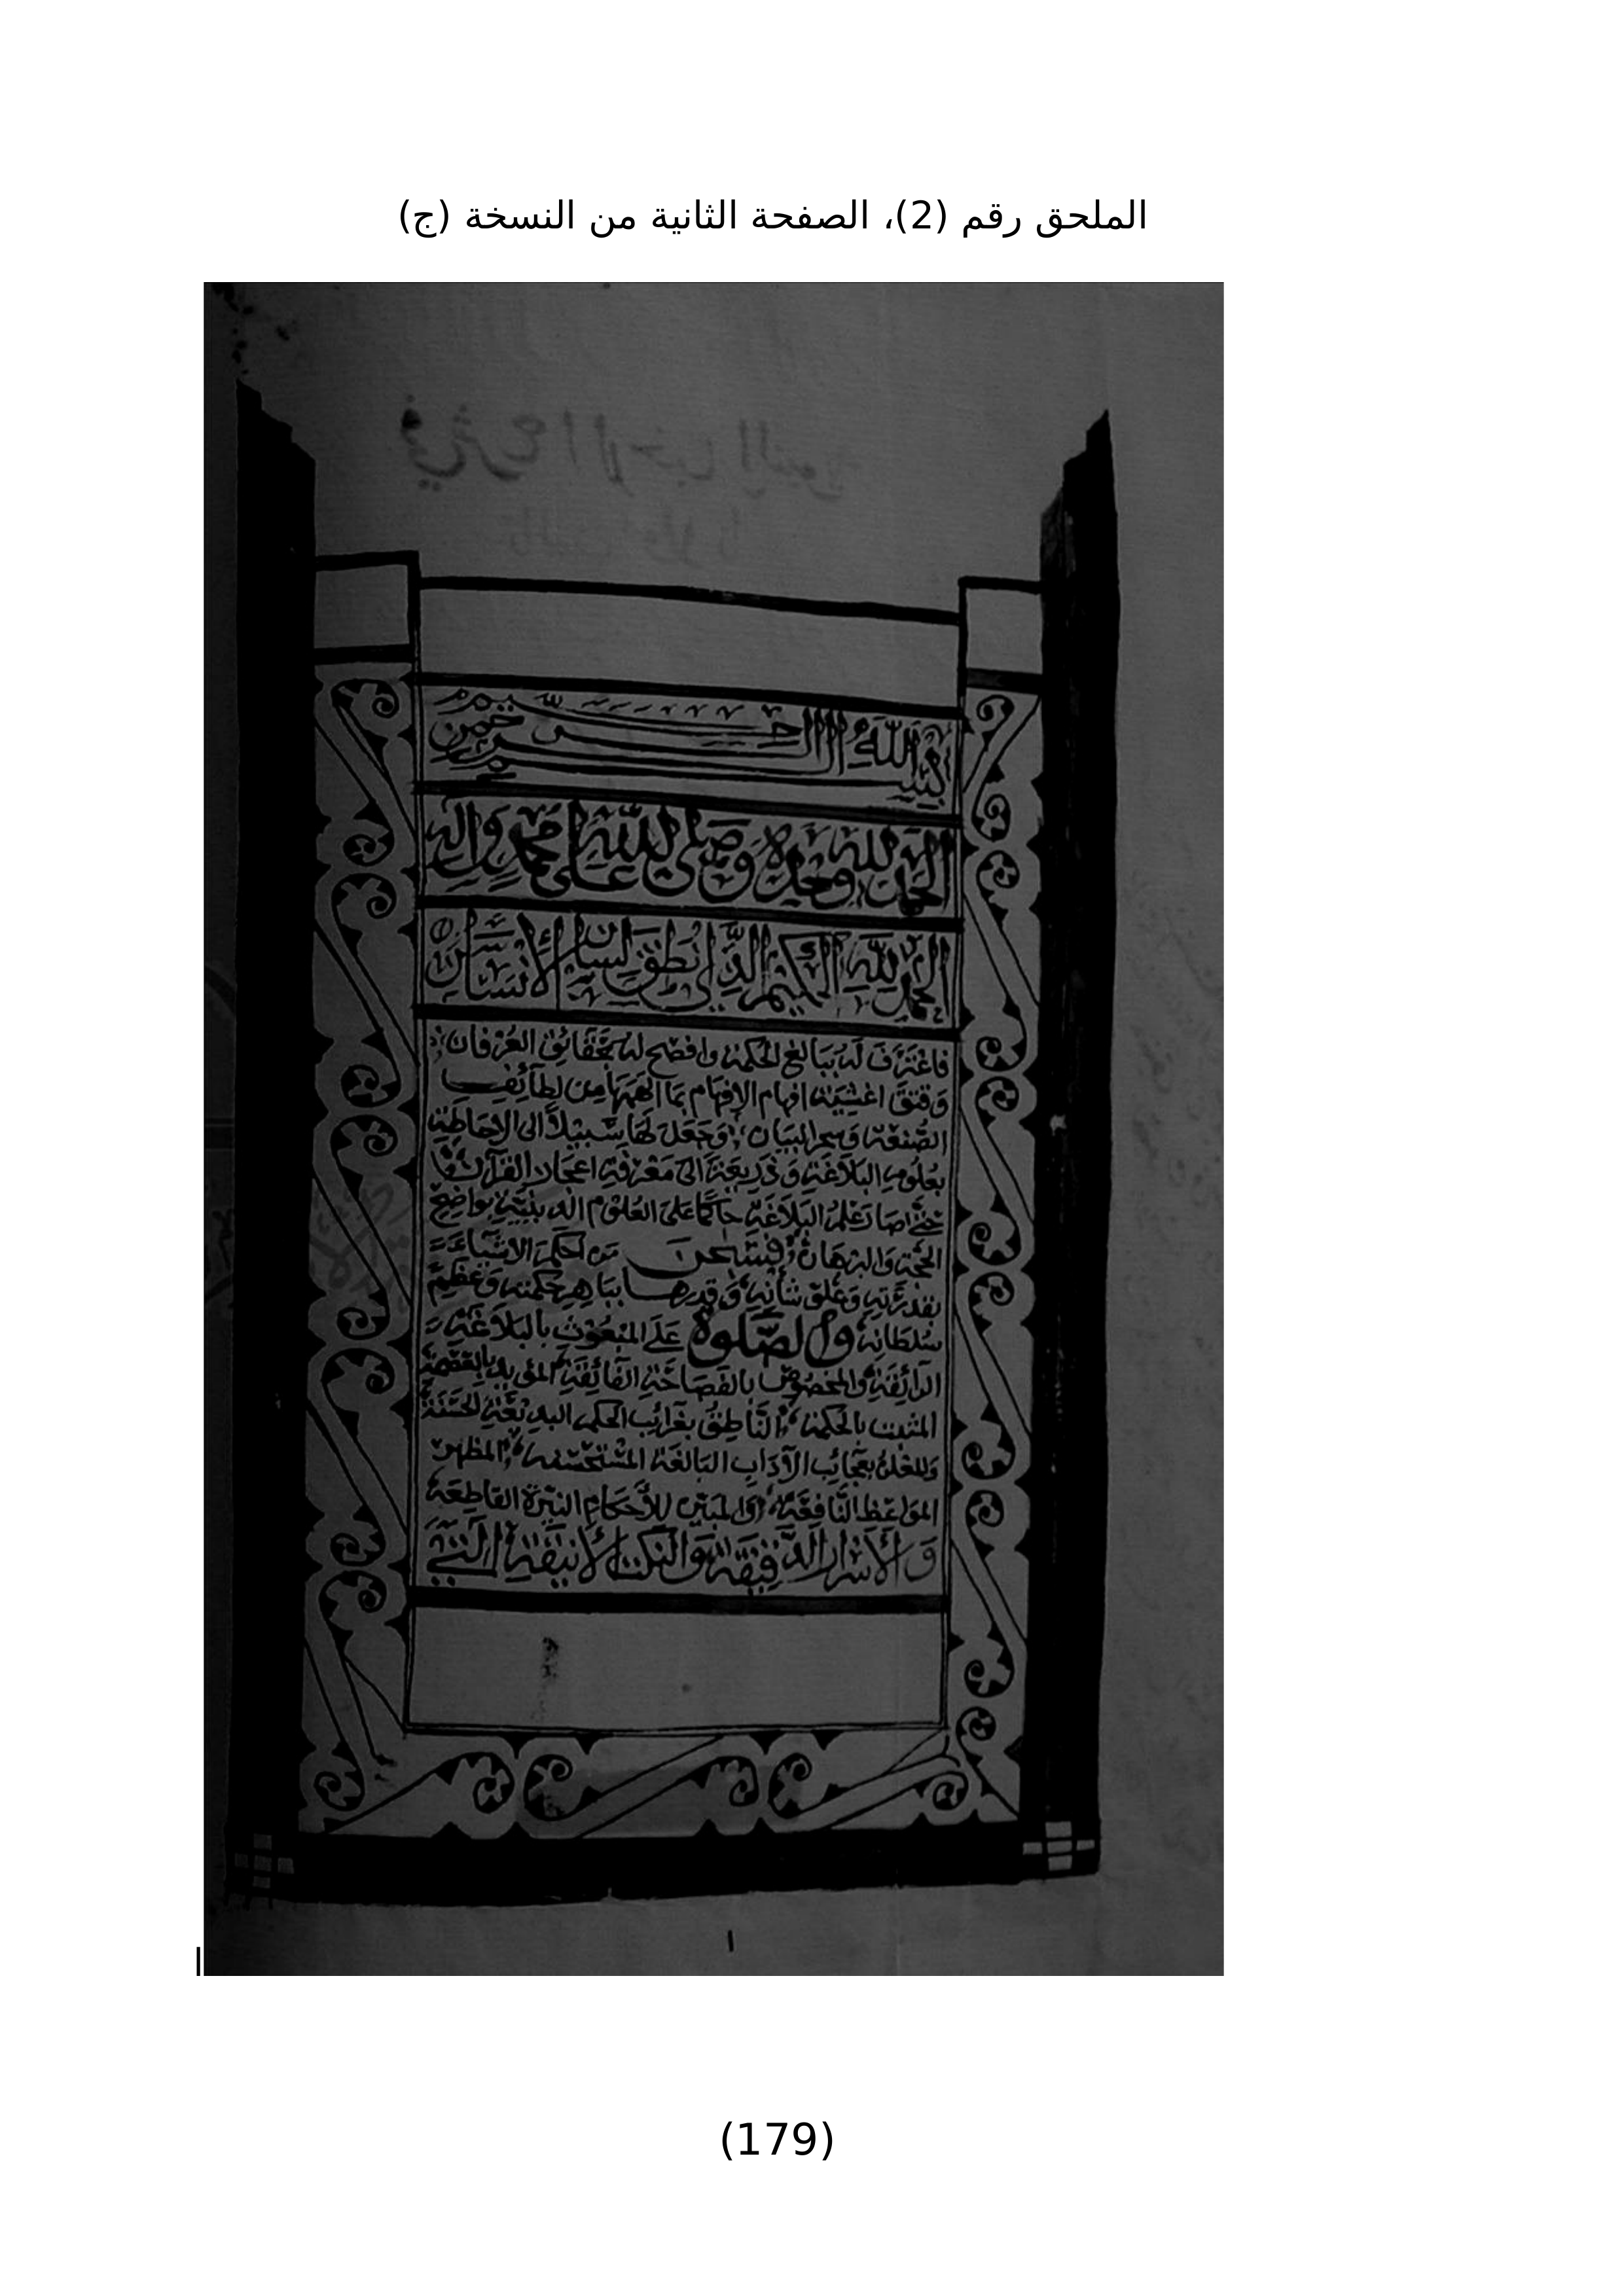 الملحق رقم (2)، الصفحة الثانية من النسخة (ج)
في شرح الاخبار
بسم الله الرحمن الرحيم
الحمد لله وحده وصلى الله على محمد واله
الحمد لله الحكيم الذي انطق لسان الانسان
فاغترف له ببالغ الحكمة وافصح له بحقائق العرفان
وفتق اغشية افهام الافهام بما الهمها من لطائف
الصنعة وسحر البيان وجعل لها سبيلا الى الاحاطة
بعلوم البلاغة وذريعة الى معرفة اعجاز القرآن
حتى صار علم البلاغة حاكما على العلوم الدينية بواضح
الحجة والبرهان فسبحن من احكم الاشياء
بقدرته وعلو شانه وقدرها بباهر حكمته وعظيم
سلطانه والصلوة على المبعوث بالبلاغة
الرائقة والمخصوص بالفصاحة الفائقة المؤيد بالعصمة
بالحكمة الناطق بغرائب الحكم البديعة الحسنة
بعجائب الآداب البالغة المستحسنة المظهر
المواعظ النافعة والمبين للأحكام النيرة القاطعة
والأسرار الدقيقة والنكت الأنيقة التي
١
(179)